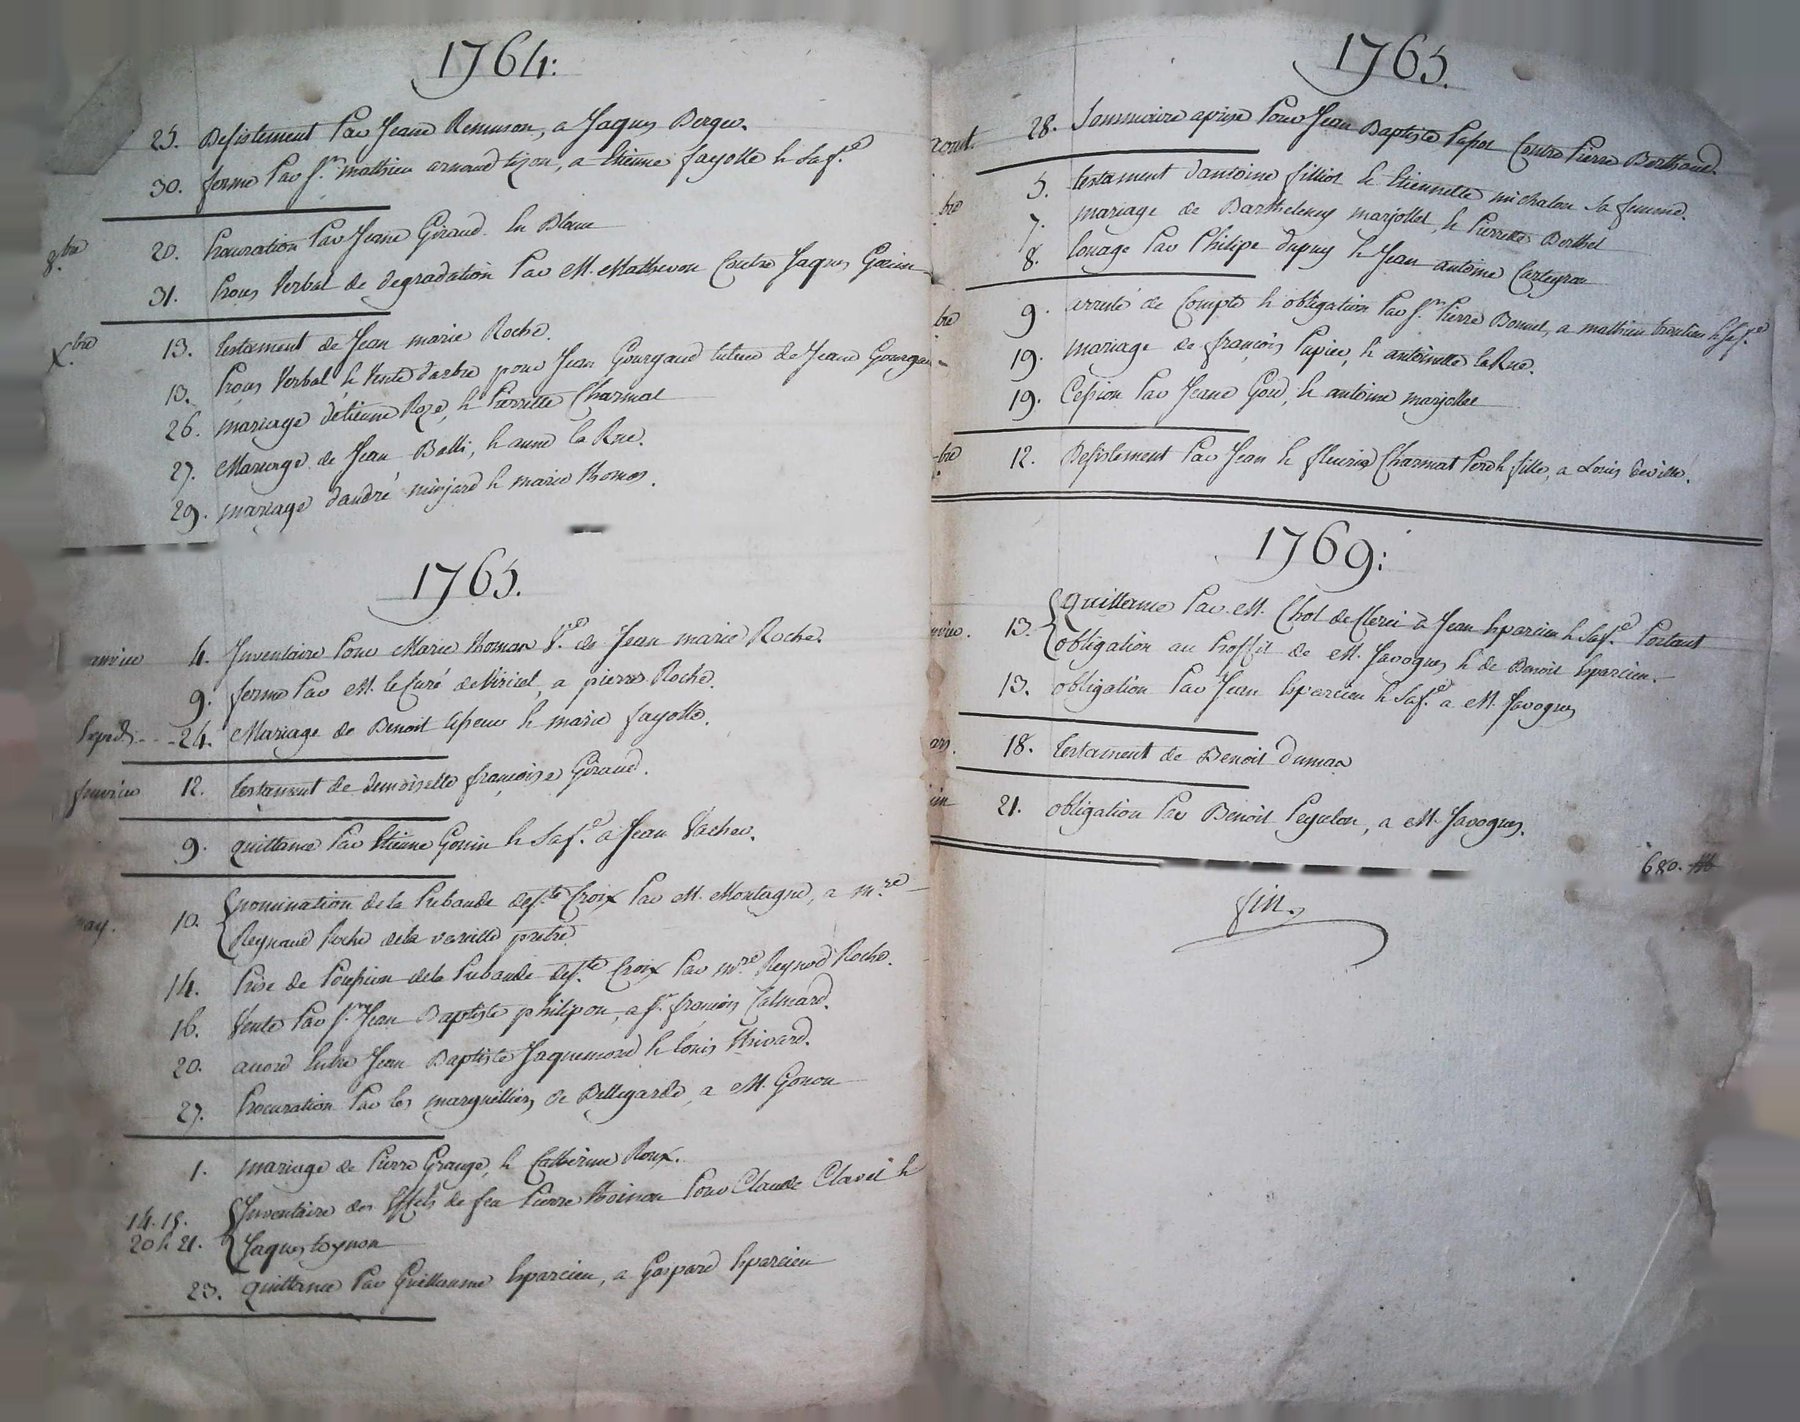 1764:
25. Desistement Par Jeane Remuson, a Jaques Berger.
30. ferme Par Sr. mathieu arnaud tizon, a Etienne fayolle & Sa fe.
8.bre 20. Procuration Par Jeane Giraud
31. Proces Verbal de degradation Par M. Mathevon Contre Jaques
X.bre 13. testament de Jean marie Roche.
13. Proces Verbal & Vente darbre pour Jean Gourgaud tuteur de Jeane
26. mariage d'etienne Roze, & Pierrette Charmat
27. Mariage de Jean Balli, & anne la Rue.
29. mariage d'andré minjard & marie thomas.
1765.
anvier 4. Inventaire Pour Marie thomas Ve. de Jean marie Roche.
9. ferme Par M. le Curé de Viricel, a pierre Roche.
24. Mariage de Benoit & marie fayolle.
fevrier 12. testament de demoiselle françoise Giraud.
9. quittance Par Etienne Goutin & Sa fe. a Jean Vacher.
may. 10. nomination de la Prebande de Ste Croix Par M. Montagne, a Mre
Reynaud Roche de la prêtre
14. Prise de Possession de la Prebande de Ste Croix Par mre Reynod Roche.
16. Vente Par Sr. Jean Baptiste philipon, a Sr. françois Calmard.
20. acord Entre Jean Baptiste Jaquemond & louis thivard.
27. Procuration Par les marguilliers de Bellegarde, a M. Gonon
1. mariage de Pierre Grange, & Catherine Roux.
14. 15. Inventaire des Effets de feu Pierre thoinon Pour Claude Clavel &
20 & 21. Jaques toynon
23. quittance Par Guillaume Eparcieu, a Gaspard Eparcieu
1765.
aout. 28. Sommaire aprise Pour Jean Baptiste Contre Pierre Berthaud.
bre 5. testament dantoine filliot & Etiennette michalon Sa femme.
7. mariage de Barthelemy marjollet, & Pierrette Berthet
8. louage Par Philipe dupuy & Jean antoine
bre 9. arreté de Compte & obligation Par Sr. Pierre Bonnet, a mathieu & Sa fe.
19. mariage de françois Papier, & antoinette laRue.
19. Cession Par Jeane Gord, & antoine marjollet
bre 12. Desistement Par Jean & fleurie Charmat Pere & fille, a Louis deville.
1769:
nvier. 13. Quittance Par M. Chol de Clerei a Jean Eparcieu & Sa fe. Portant
obligation au Proffit de M. Javogues & de Benoit Eparcieu.
13. obligation Par Jean Eparcieu & Sa fe. a M. Javogues
ars. 18. testament de Benoit dumas
uin 21. obligation Par Benoit, a M. Javogues.
680.
fin.